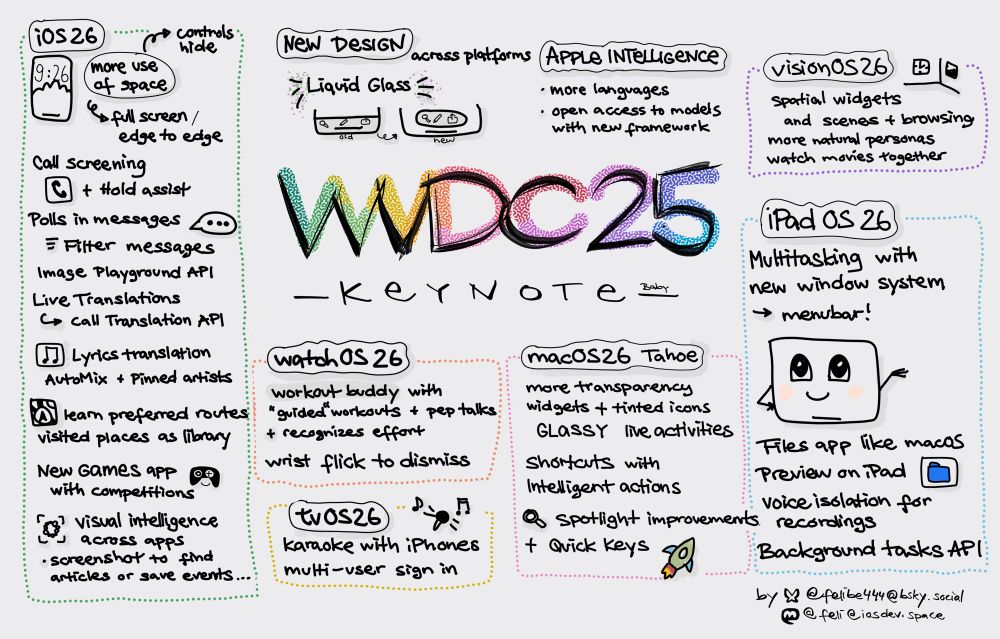 iOS 26
controls
hide
9:26
more use
of space
full screen /
edge to edge
Call screening
+ Hold assist
Polls in messages
Filter messages
Image Playground API
Live Translations
call Translation API
Lyrics translation
AutoMix + Pinned artists
learn preferred routes
visited places as library
New Games app
with competitions
visual intelligence
across apps
• screenshot to find
articles or save events...
New Design
across platforms
Liquid Glass
old
new
Apple Intelligence
• more languages
• open access to models
with new framework
WWDC25
— KEYNOTE Baby —
watchOS 26
workout buddy with
"guided" workouts + pep talks
+ recognizes effort
wrist flick to dismiss
tvOS26
karaoke with iPhones
multi-user sign in
macOS26 Tahoe
more transparency
widgets + tinted icons
GLASSY live activities
Shortcuts with
Intelligent actions
Spotlight improvements
+ Quick Keys
visionOS26
spatial widgets
and scenes + browsing
more natural personas
watch movies together
iPad OS 26
Multitasking with
new window system
→ menubar!
Files app like macOS
Preview on iPad
voice isolation for
recordings
Background tasks API
by @felibe444@bsky.social
@feli@iosdev.space